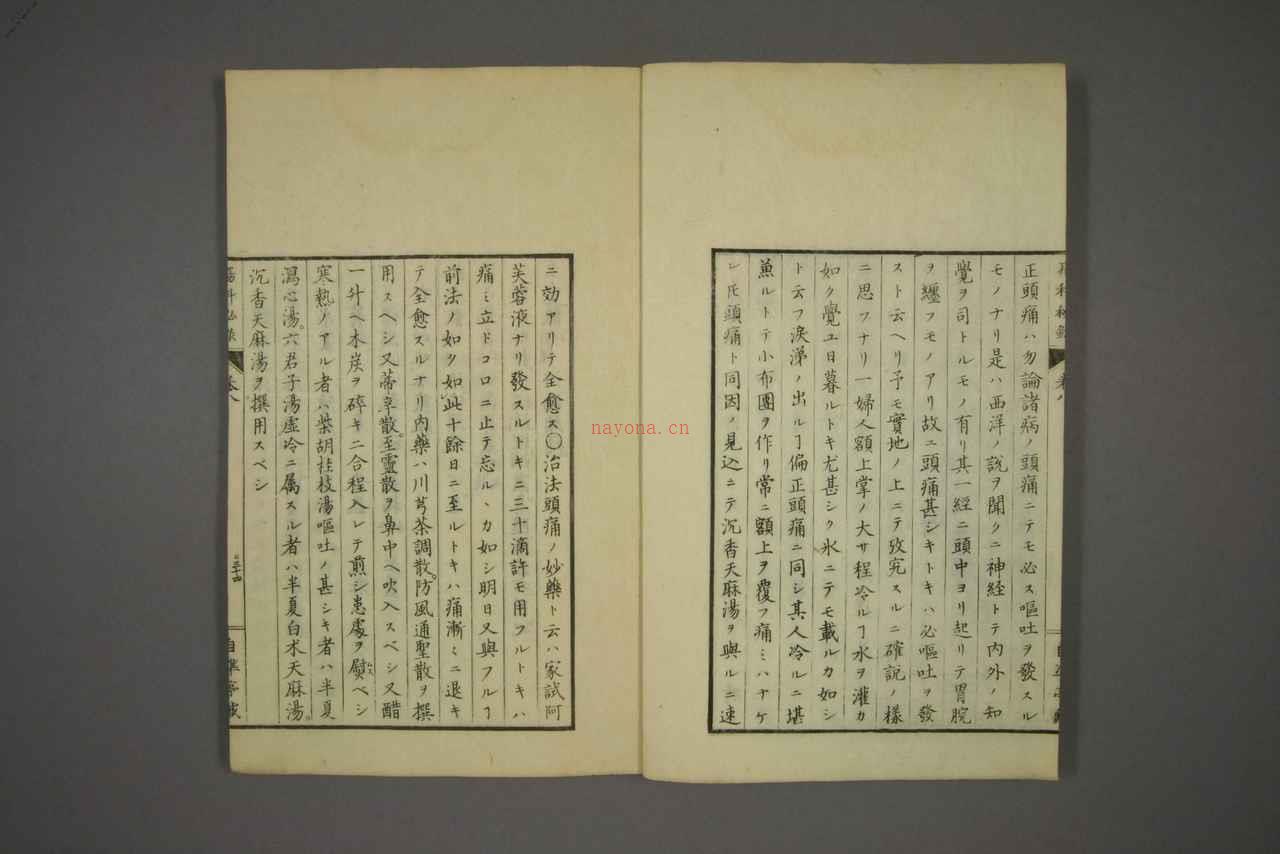 正頭痛ハ勿論諸病ノ頭痛ニテモ必ス嘔吐ヲ發スル
モノナリ是ハ西洋ノ説ヲ聞クニ神経トテ内外ノ知
覺ヲ司トルモノ有リ其一經ニ頭中ヨリ起リテ胃脘
ヲ纏フモノアリ故ニ頭痛甚シキトキハ必嘔吐ヲ發
スト云ヘリ予モ實地ノ上ニテ攷究スルニ確説ノ樣
ニ思フナリ一婦人額上掌ノ大サ程冷ルヿ水ヲ灌カ
如ク覺ユ日暮ルトキ尤甚シク氷ニテモ載ルカ如シ
ト云フ涙涕ノ出ルヿ偏正頭痛ニ同シ其人冷ルニ堪
兼ルトテ小布團ヲ作リ常ニ額上ヲ覆フ痛ミハナケ
レ𪜈頭痛ト同因ノ見込ニテ沉香天麻湯ヲ與ルニ速
ニ効アリテ全愈ス〇治法頭痛ノ妙藥ト云ハ家試阿
芙蓉液ナリ發スルトキニ三十滴許モ用フルトキハ
痛ミ立ドコロニ止テ忘ルヽカ如シ明日又與フルヿ
前法ノ如ク如此十餘日ニ至ルトキハ痛漸〻ニ退キ
テ全愈スルナリ内藥ハ川芎茶調散。防風通聖散ヲ撰
用スヘシ又蒂皐散。至靈散ヲ鼻中ヘ吹入スベシ又醋
一升ヘ木炭ヲ碎キ二合程入レテ煎シ患處ヲ熨スベシ
寒熱ノアル者ハ柴胡桂枝湯嘔吐ノ甚シキ者ハ半夏
瀉心湯。六君子湯虚冷ニ属スル者ハ半夏白朮天麻湯。
沉香天麻湯ヲ撰用スベシ
卷八
三十四
nayona.cn